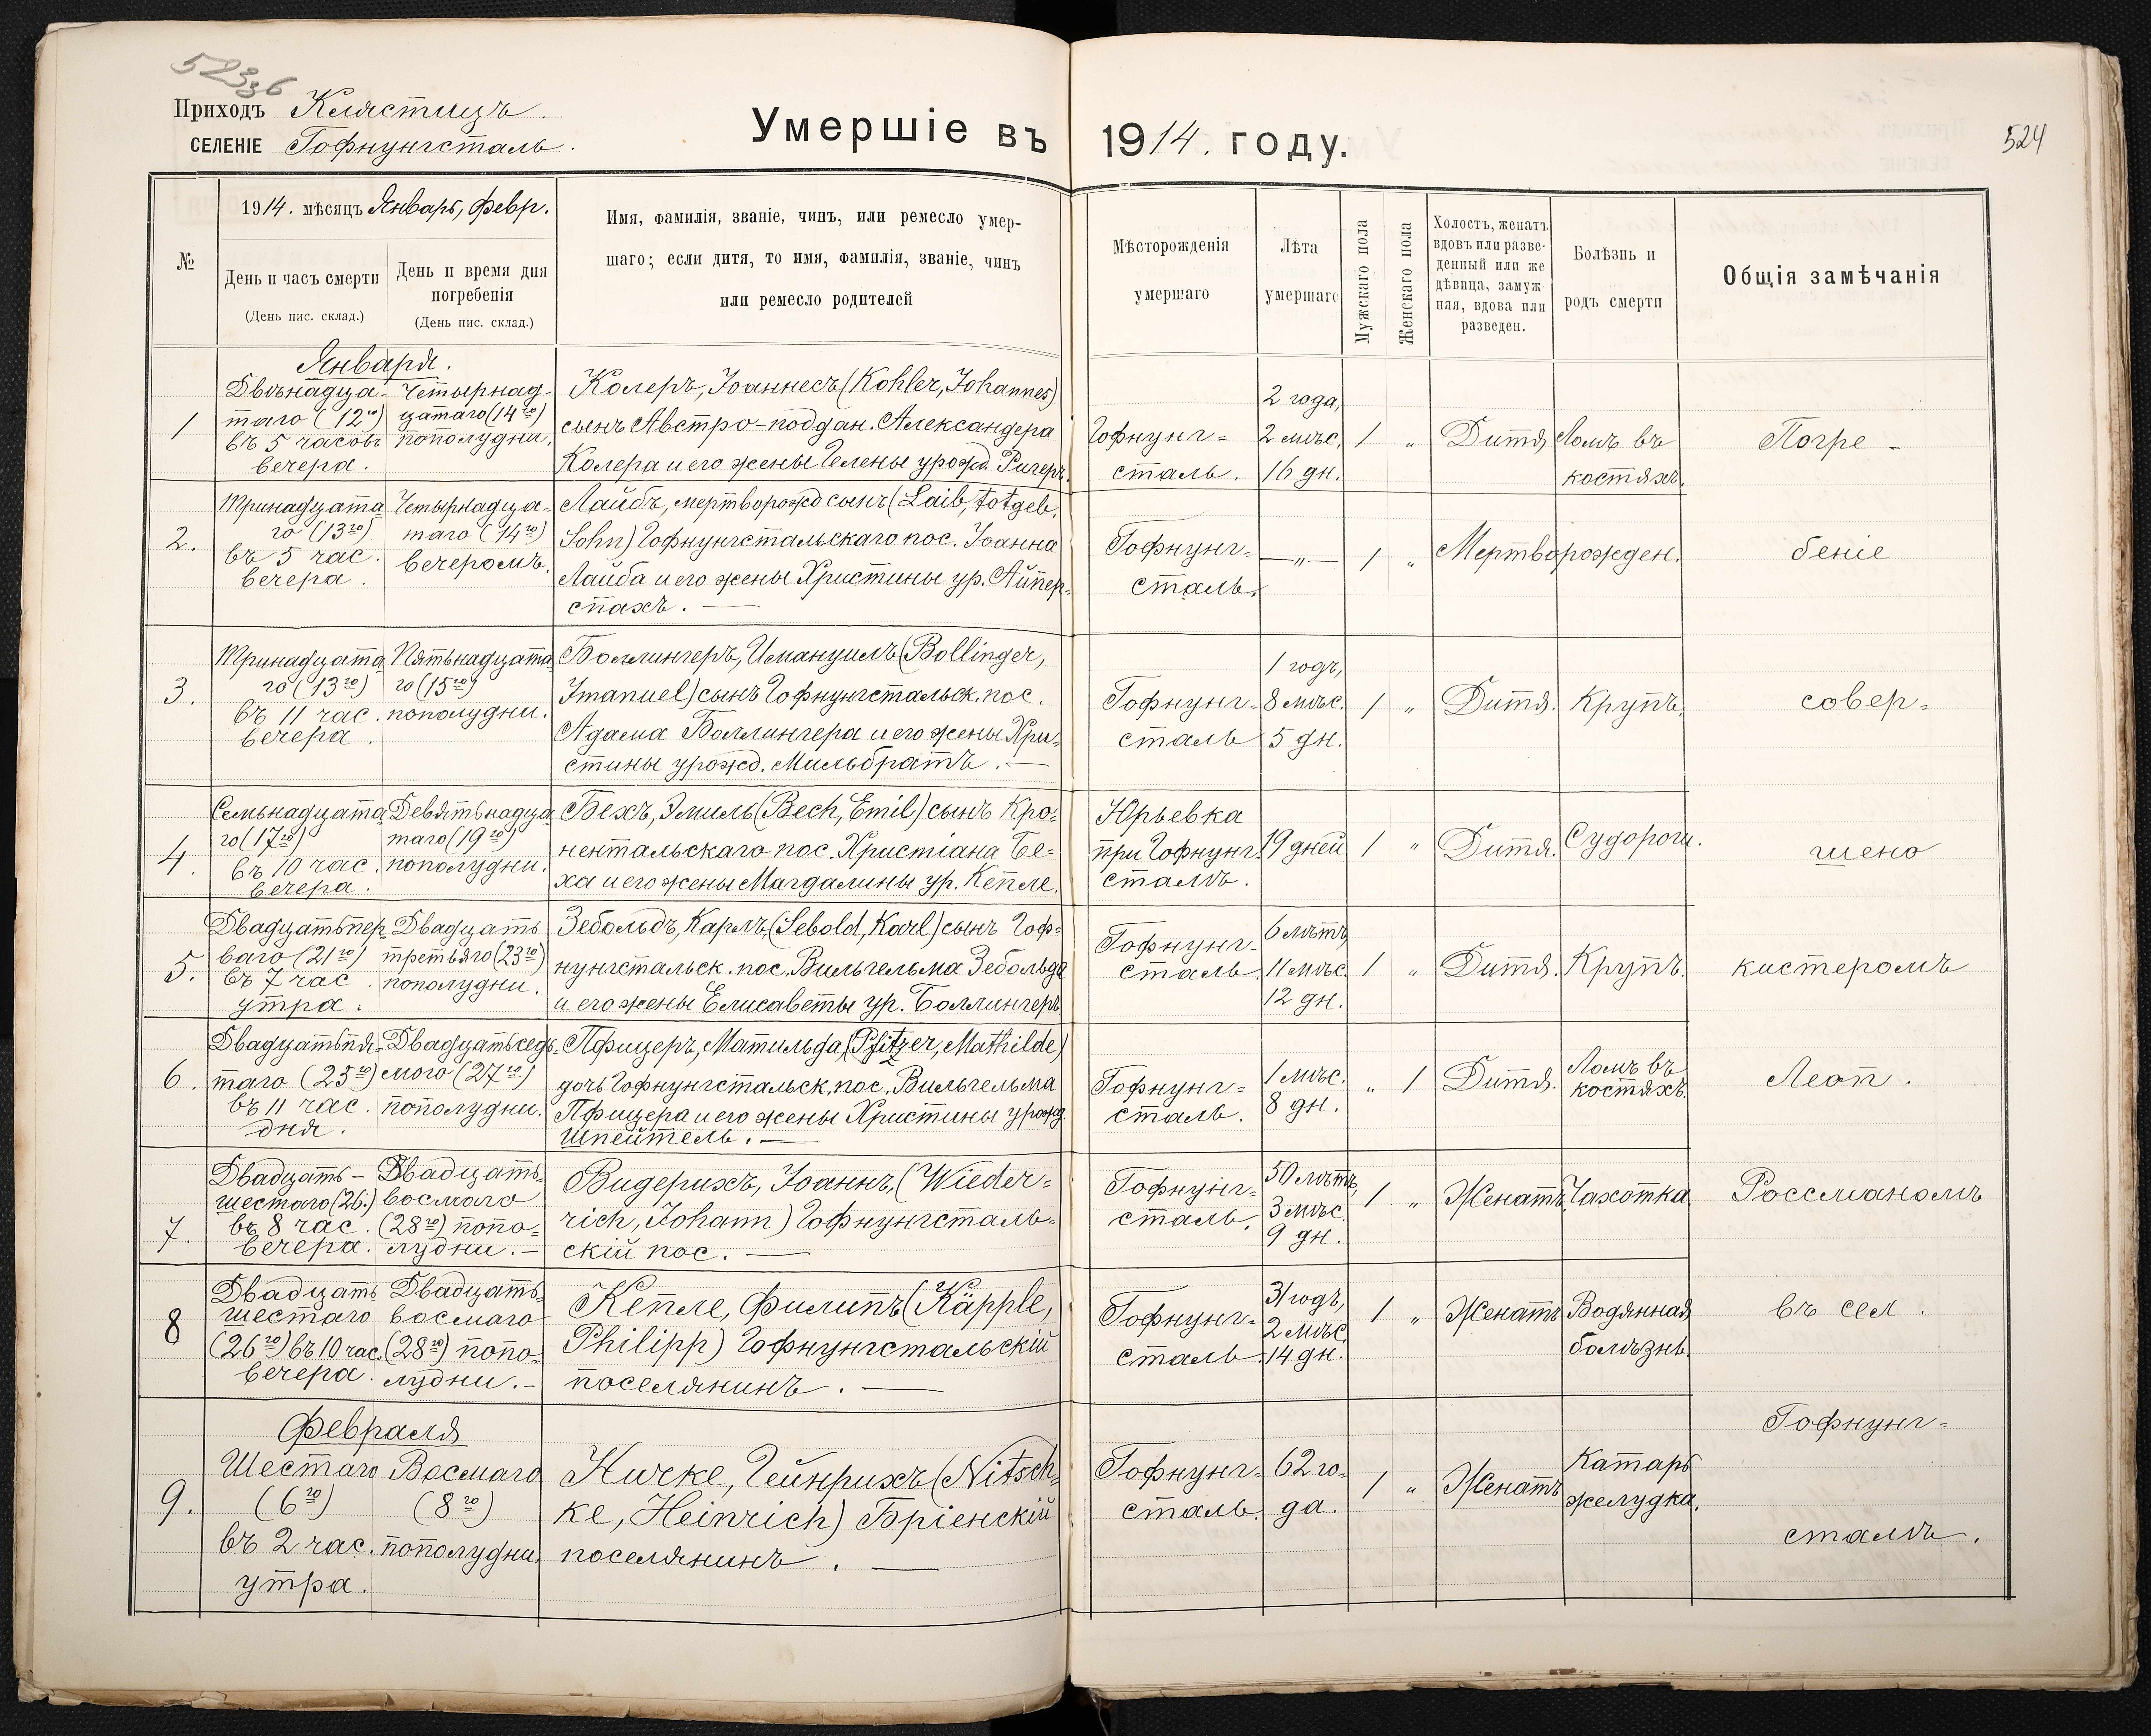 523 36
Приходъ Клястицъ.
СЕЛЕНІЕ Гофнунгсталь.
Умершіе въ 1914. году.
524
№
1914. мѣсяцъ Январь, Февр.
День и часъ смерти
(День пис. склад.)
День и время дня
погребенія
(День пис. склад.)
Имя, фамилія, званіе, чинъ, или ремесло умер-
шаго; если дитя, то имя, фамилія, званіе, чинъ
или ремесло родителей
Мѣсторожденія
умершаго
Лѣта
умершаго
Мужскаго пола
Женскаго пола
Холостъ, женатъ
вдовъ или разве-
денный или же
дѣвица, замуж
няя, вдова или
разведен.
Болѣзнь и
родъ смерти
Общія замѣчанія
Января.
1
Двѣнадца-
таго (12го)
въ 5 часовъ
вечера.
Четырнад-
цатаго (14го)
пополудни.
Колеръ, Іоаннесъ (Kohler, Johannes)
сынъ Австро-поддан. Александера
Колера и его жены Гелены урожд. Ригеръ.
Гофнунг=
сталь.
2 года,
2 мѣс.
16 дн.
1
"
Дитя
Ломъ въ
костяхъ.
Погре-
2.
Тринадцата
го (13го)
въ 5 час.
вечера.
Четырнадца-
таго (14го)
вечеромъ.
Лайбъ, мертворожд сынъ (Laib, totgeb.
Sohn) Гофнунгстальскаго пос. Іоанна
Лайба и его жены Христины ур. Айпер-
спахъ. —
Гофнунг=
сталь.
—"—
1
"
Мертворожден.
беніе
3.
Тринадцата
го (13го)
въ 11 час.
вечера.
Пятьнадцата
го (15го)
пополудни.
Боллингеръ, Имануилъ (Bollinger,
Imanuel) сынъ Гофнунгстальск. пос.
Адама Боллингера и его жены Хри=
стины урожд. Мильбратъ. —
Гофнунг=
сталь
1 годъ,
8 мѣс.
5 дн.
1
"
Дитя.
Крупъ.
совер=
4.
Семьнадцата
го (17го)
въ 10 час.
вечера.
Девятьнадца
таго (19го)
пополудни.
Бехъ, Эмиль (Bech, Emil) сынъ Кро=
нентальскаго пос. Христіана Бе=
ха и его жены Магдалины ур. Кепле.
Юрьевка
при Гофнунг
сталѣ.
19 дней
1
"
Дитя.
Судороги.
шено
5.
Двадцатьпер
ваго (21го)
въ 7 час.
утра.
Двадцать
третьяго (23го)
пополудни.
Зебольдъ, Карлъ, (Sebold, Karl) сынъ Гоф=
нунгстальск. пос. Вильгельма Зебольда
и его жены Елисаветы ур. Боллингеръ
Гофнунг-
сталь.
6 лѣтъ
11 мѣс.
12 дн.
1
"
Дитя.
Крупъ.
кистеромъ
6.
Двадцатьпя-
таго (25го)
въ 11 час.
дня.
Двадцатьседь-
мого (27го)
пополудни.
Пфицеръ, Матильда, (Pfitzer, Mathilde)
дочь Гофнунгстальск. пос. Вильгельма
Пфицера и его жены Христины урожд.
Шпейтель. —
Гофнунг=
сталь.
1 мѣс.
8 дн.
"
1
Дитя.
Ломъ въ
костяхъ.
Леоп.
7.
Двадцать-
шестаго (26.)
въ 8 час.
вечера.
Двадцать-
восмаго
(28го) попо=
лудни. —
Видерихъ, Іоаннъ, (Wieder=
rich, Johann) Гофнунгсталь=
скій пос. —
Гофнунг=
сталь.
50 лѣтъ,
3 мѣс.
9 дн.
1
"
Женатъ
Чахотка
Россманомъ
8
Двадцать
шестаго
(26го) въ 10 час.
вечера.
Двадцать
восмаго
(28го) попо-
лудни. —
Кепле, Филипъ (Käpple,
Philipp) Гофнунгстальскій
поселянинъ. —
Гофнунг-
сталь.
31 годъ,
2 мѣс.
14 дн.
1
"
Женатъ
Водянная
болѣзнь.
въ сел.
Февраля
9.
Шестаго
(6го)
въ 2 час.
утра.
Восмаго
(8го)
пополудни.
Ничке, Гейнрихъ (Nitsch=
ke, Heinrich) Бріенскій
поселянинъ. —
Гофнунг-
сталь.
62 го-
да.
1
"
Женатъ
Катаръ
желудка.
Гофнунг=
сталѣ.